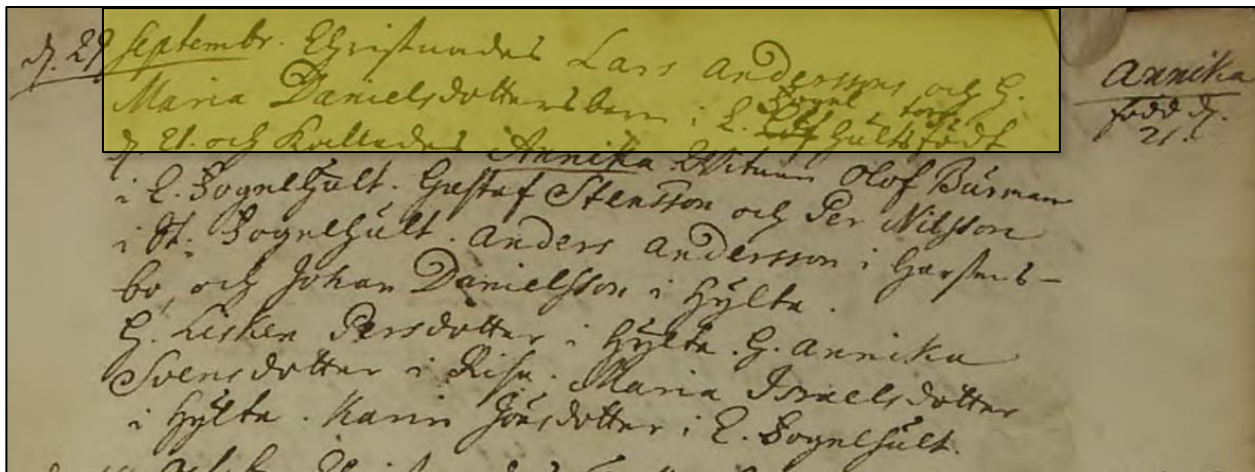 d. 29 Septembr. Christnades Lars Anderssons och H.
Maria Danielsdotters barn i L. Fogelhults torp född
d. 21. och Kallades Annika. Witnen Olof Burman
i L. Fogelhult. Gustaf Stensson och Per Nilsson
i St. Fogelhult. Anders Andersson i Garstens-
bo, och Johan Danielsson i Hylte.
H. Lisken Persdotter i Hylte. H. Annika
Svensdotter i Risa. Maria Israelsdotter
i Hylte. Karin Jönsdotter i L. Fogelhult.
Annika
född d.
21.